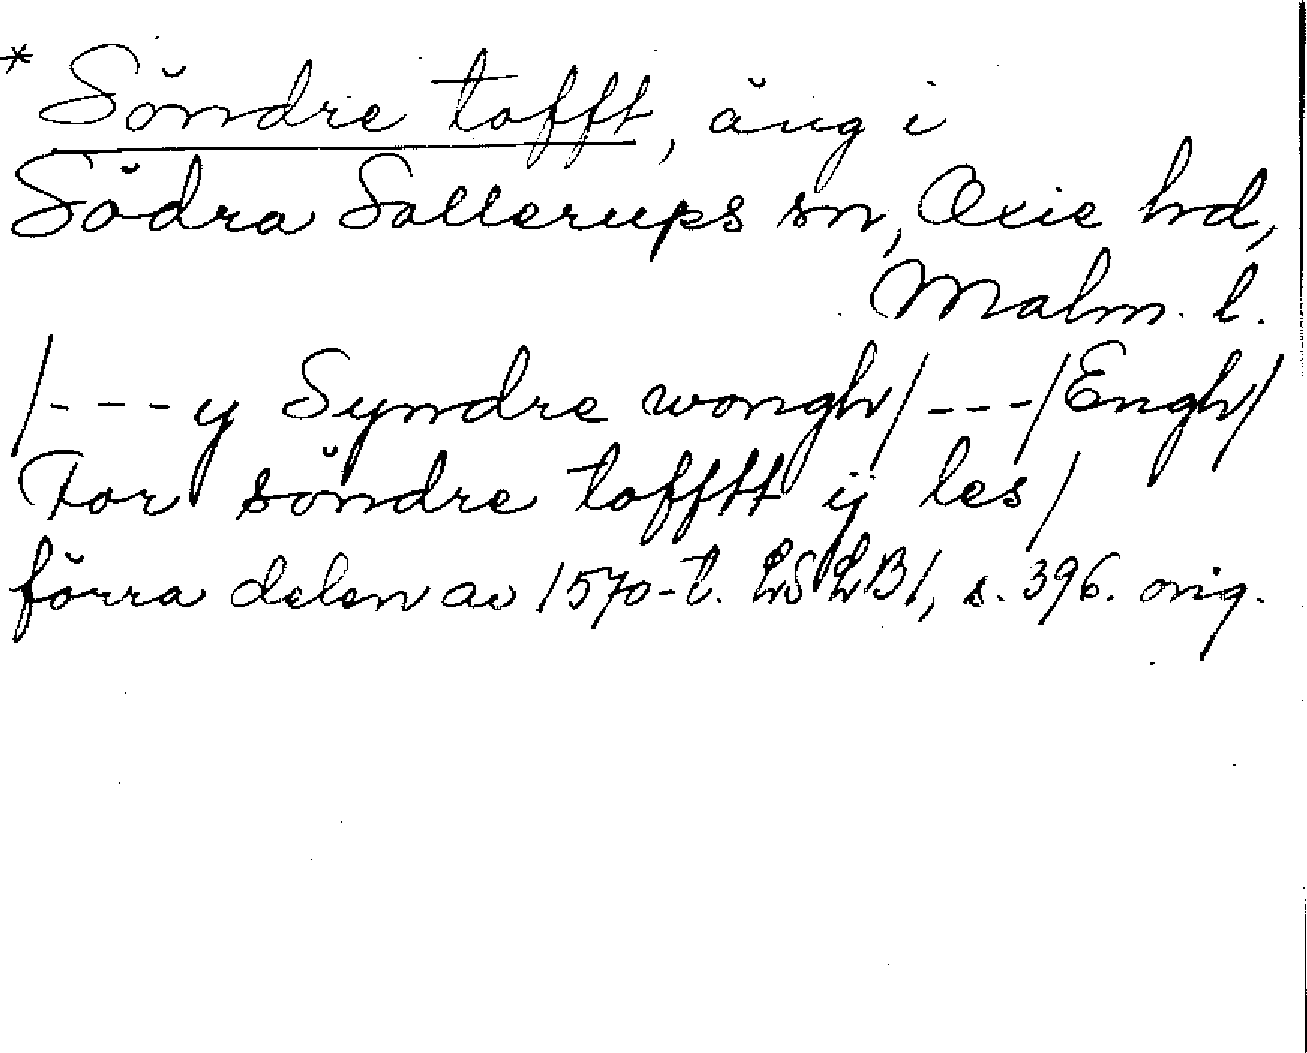 * Söndre tofft, äng i
Södra Sallerups sn, Oxie hd,
Malm. l.
/---y Syndre wongh/---/Engh/
For söndre tofftt ij les/
förra delen av 1570-t. LSLB1, s. 396. orig.